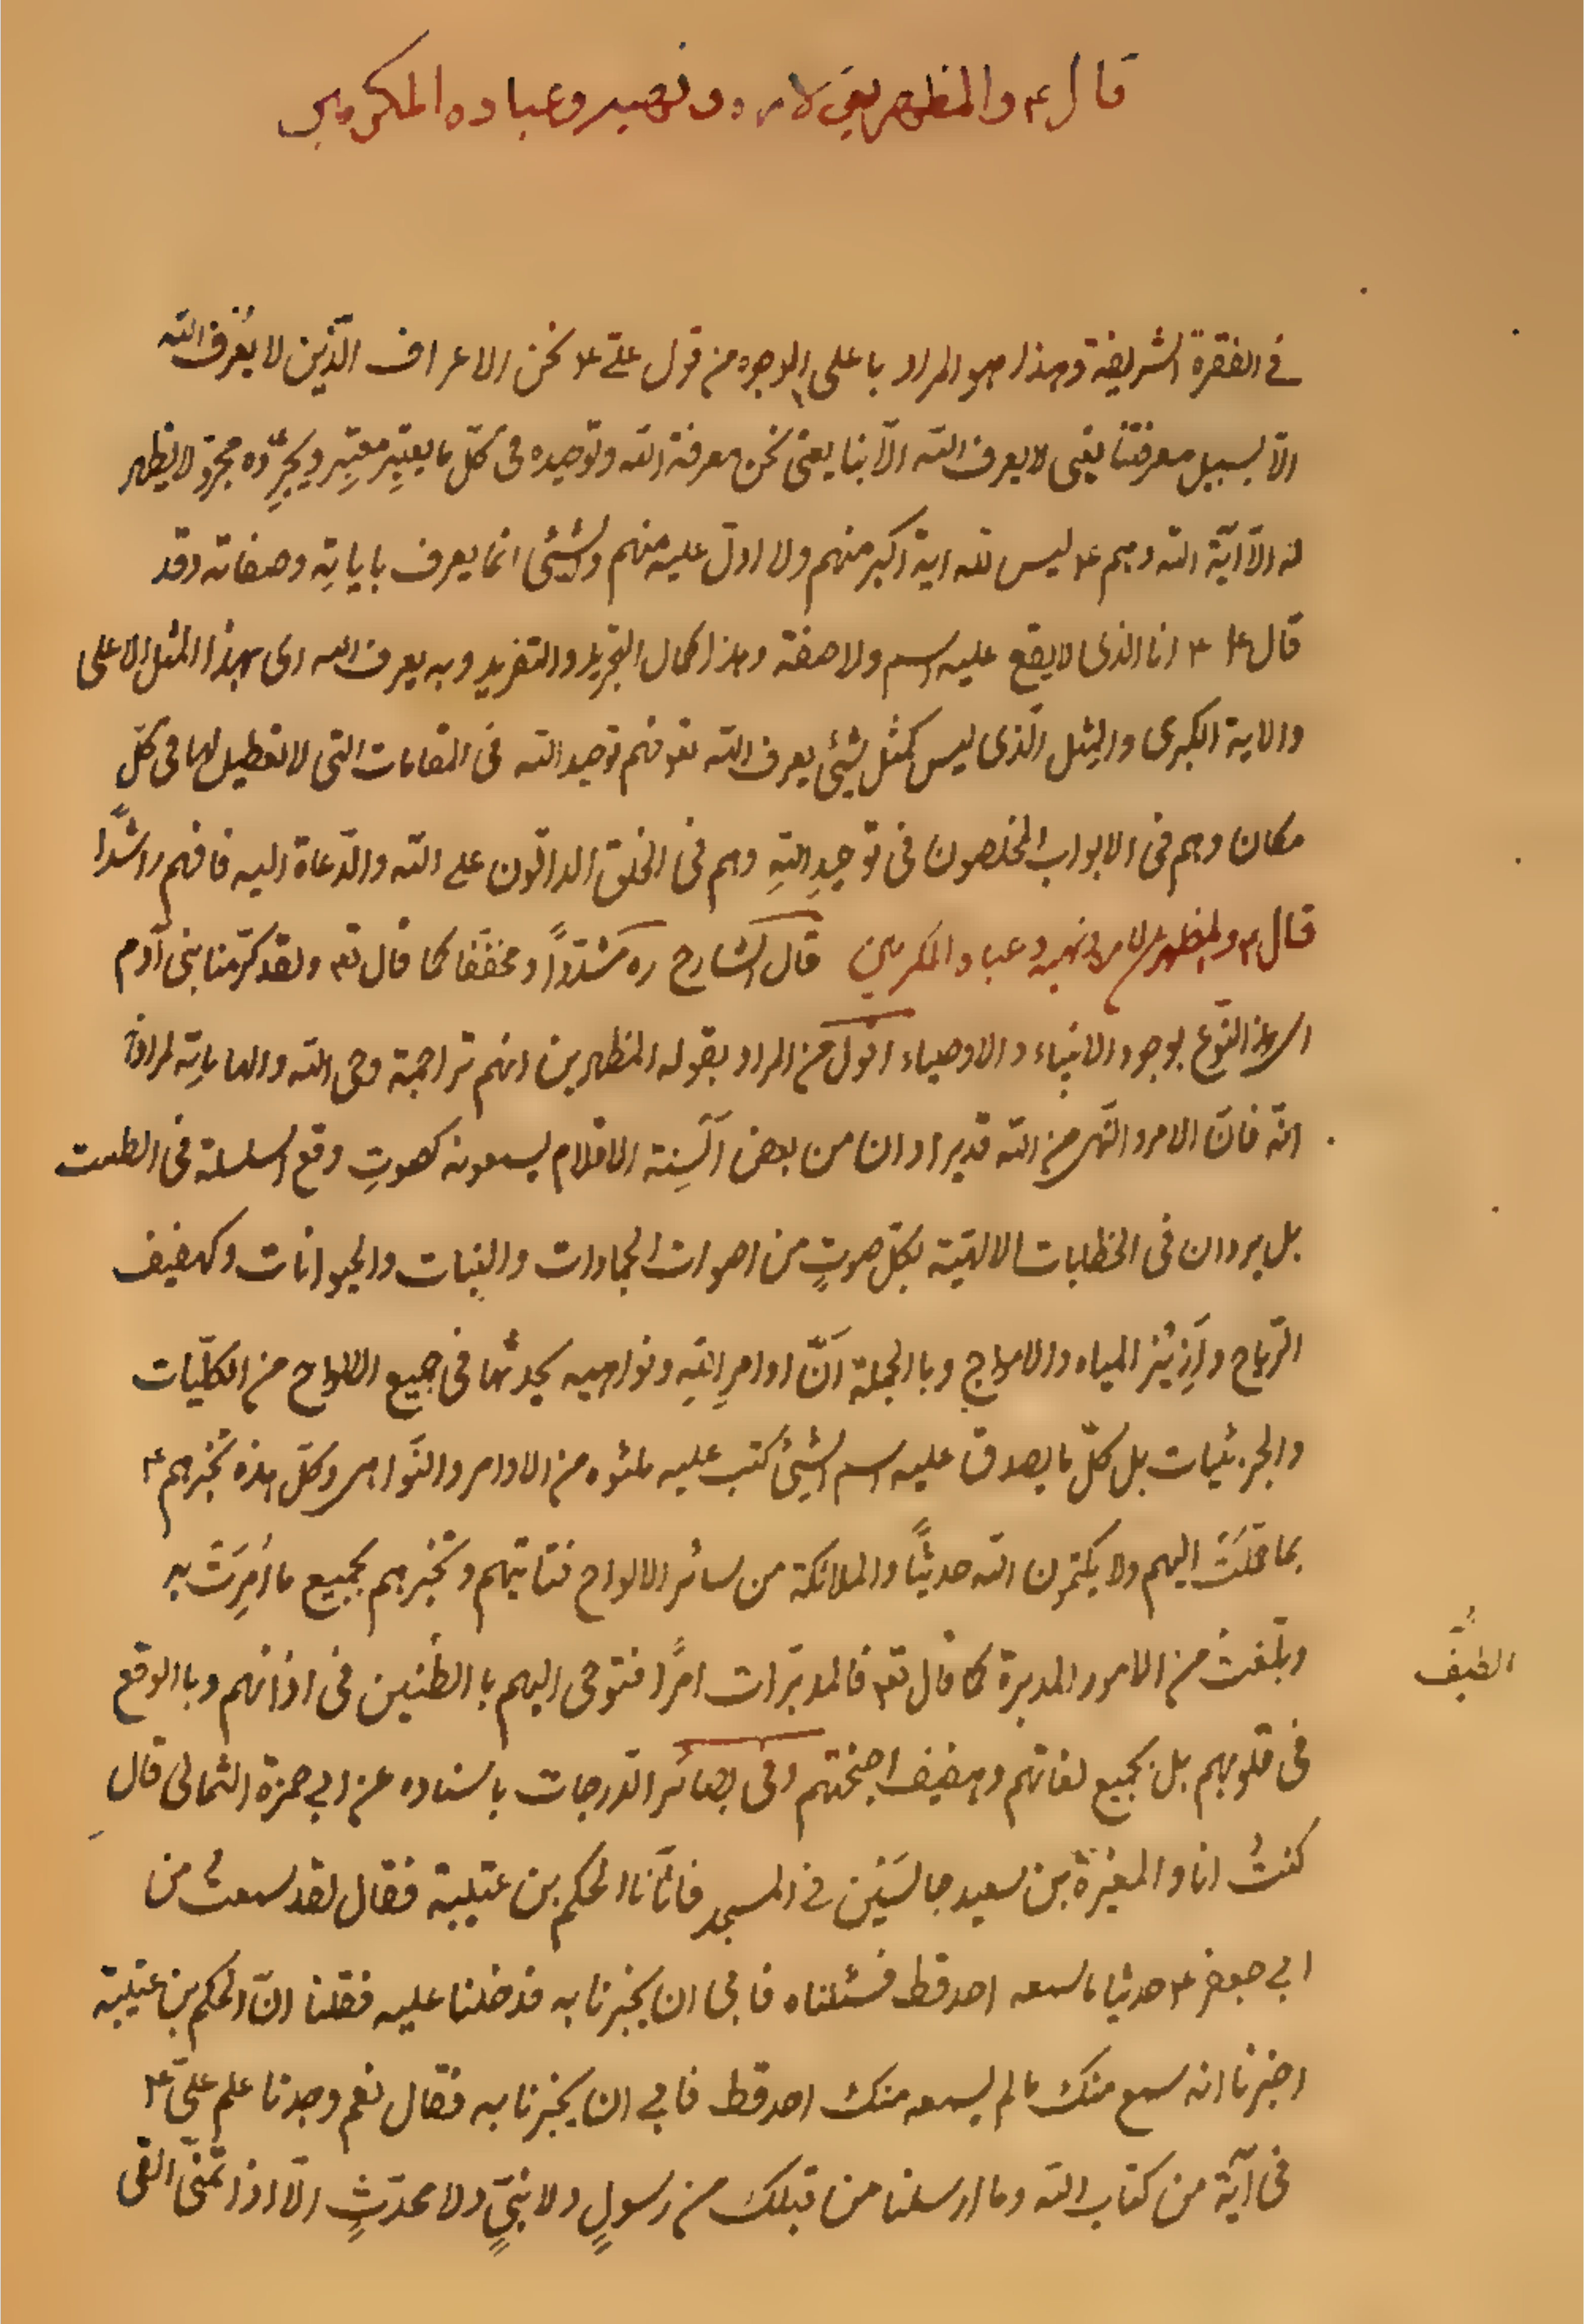 قال ع والمظهرين لامره ونهيه وعباده المكرمين
في الفقرة الشريفة وهذا هو المراد باعلى الوجوه من قول علىّ ع نحن الاعراف الّذين لا يُعْرف اللّه
الّا بسبيل معرفتنا يعنى لا يعرف اللّه الّا بنا يعنى نحن معرفة اللّه وتوحيده فى كلّ ما يعتبِر معتبِر ويجرِّده مجرّد لا يظهر
له الّا آية اللّه وهم ع ليس للّه اية اكبر منهم ولا ادلّ عليه منهم والشيئ انما يعرف باياتِه وصفاته وقد
قال ع انا الذى لا يقع عليه اسم ولا صفة وهذا كمال التجريد والتفريد وبه يعرف اللّه اى بهذا المثل الاعلى
والاية الكبرى والمِثل الّذى ليس كمثله شيئ يعرف اللّه فهم توحيد اللّه فى المقامات التى لا تعطيل لها فى كلّ
مكان وهم فى الابواب المخلصون فى توحيدِ اللّهِ وهم فى الخلق الدالّون على اللّه والدّعاة اليه فافهم راشدًا
قال ع والمظهرين لامره ونهيه وعباده المكرمين قال الشارح ره مشدّدًا ومخفّفًا كما قال تع ولقد كرّمنا بنى آدم
اى هذا النّوع بوجود الانبياء والاوصياء اقول من المراد بقوله المظهرين انهم تراجمة وحى اللّه والهاماتِه لمرادات
اللّه فانّ الامر والنّهى من اللّه قد يرادان من بعض اَلْسِنة الاقلام يسمعونه كصوتِ وقع السلسلة فى الطست
بل يردان فى الخطابات الالهيّة بكلّ صوتٍ من اصوات الجمادات والنبات والحيوانات وكهفيف
الرّياح واَزِيْز المياه والامواج وبالجملة انّ اوامرِ اللّهِ ونواهيه يجدثها فى جميع الالواح من الكليّات
والجزئيات بل كلّ ما يصدق عليه اسم الشيئ كتب عليه من الاوامر والنّواهى وكلّ هذه تُخْبرهم ع
بما حملَتْ اليهم ولا يكتمون اللّه حديثًا والملائكة من سائر الالواح فتاتيهم وتخبرهم بجميع ما اُمِرَتْ به
وبلّغت من الامور المدبرة كما قال تع فالمدبّرات امرًا فتوحى اليهم بالطّنين فى اذانهم وبالوقع
الطيّف
فى قلوبهم بل بجميع لغاتهم وهفيف اجنحتهم وفى بصائر الدّرجات باسناده عن ابي حمزة الثمالى قال
كنتُ انا والمغيرة بن سعيد جالسَيْن في المسجد فاتانا الحكم بن عتيبة فقال لقد سمعتُ من
ابي جعفر ع حديثا ما سمعه احد قط فسئلناه فابى ان يخبرنا به فدخلنا عليه فقلنا انّ الحكم بن عتيبة
اخبرنا انه سمع منك ما لم يسمعه منك احد قط فابي ان يخبرنا به فقال نعم وجدنا علم علىّ ع
فى آية من كتاب اللّه وما ارسلنا من قبلك من رسولٍ ولا نبىٍّ ولا محدّثٍ الّا اذا تمنّى القى